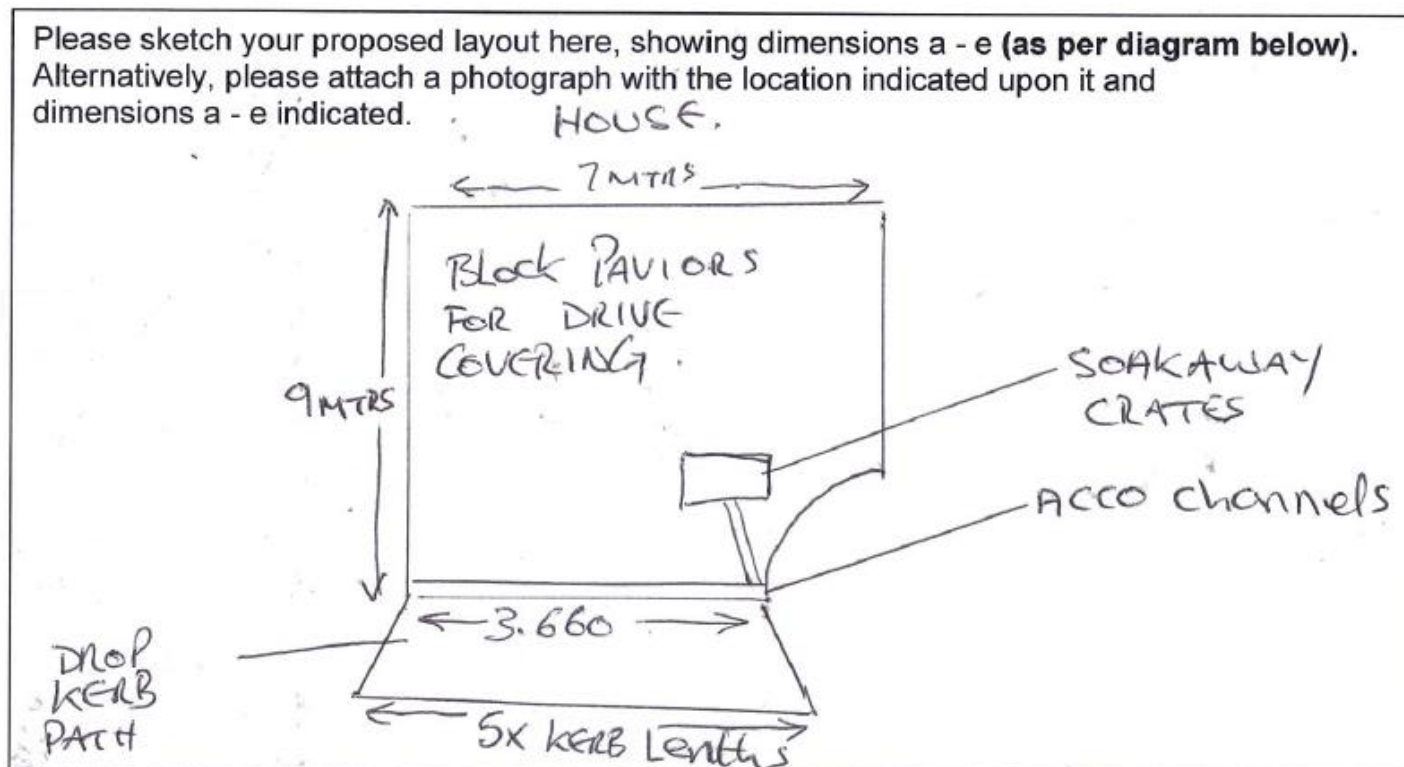 Please sketch your proposed layout here, showing dimensions a - e (as per diagram below).
Alternatively, please attach a photograph with the location indicated upon it and
dimensions a - e indicated.
HOUSE.
7 MTRS
BLock PAVIORS
FOR DRIVE
COVERING.
9 MTRS
SOAKAWAY
CRATES
ACCO channels
3.660
DROP
KERB
PATH
5X KERB Lenths